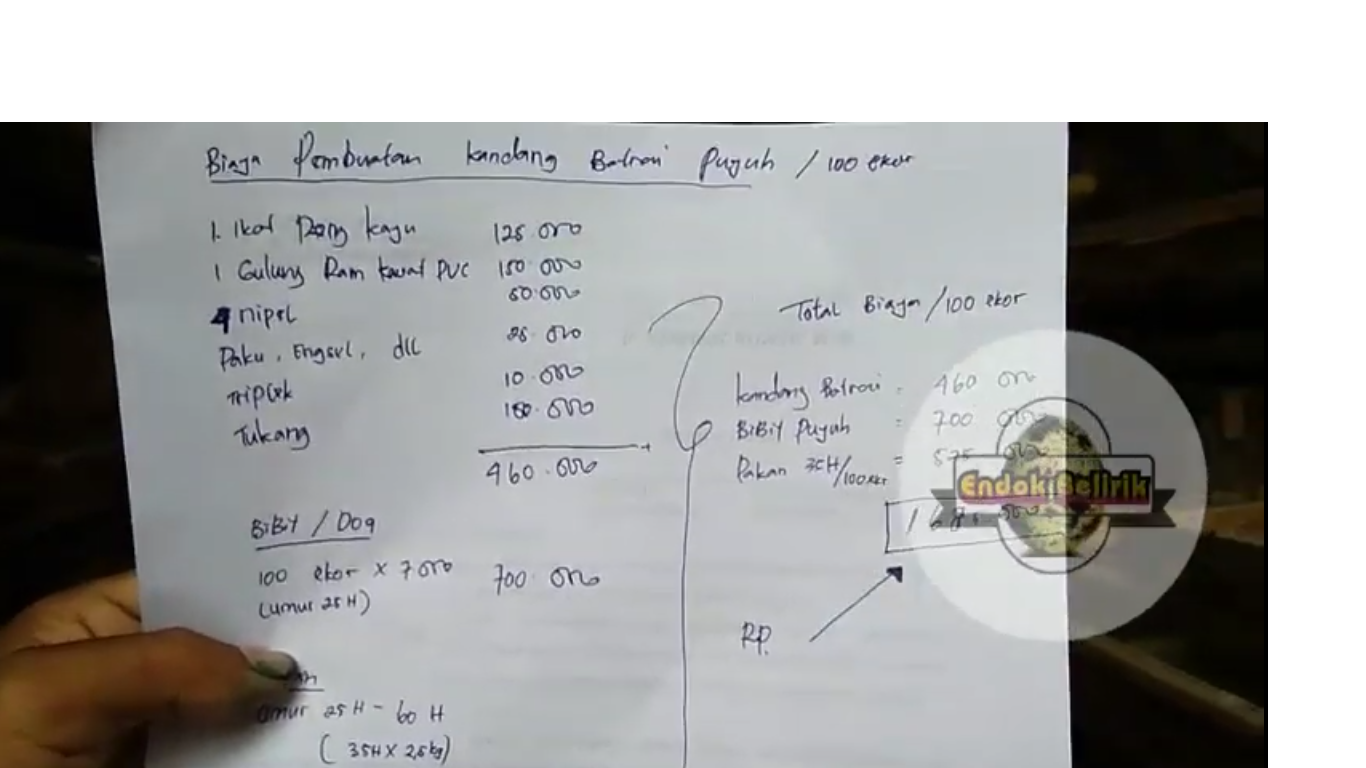 Biaya Pembuatan kandang Batrai Puyuh / 100 ekor
1. Ikat Reng kayu 125.000
1 Gulung Ram kawat PVC 150.000
4 nipel 50.000
Paku, Engsel, dll 25.000
Triplek 10.000
Tukang 100.000
460.000
BiBiT / DOQ
100 ekor x 7000 700.000
(umur 25 H)
umur 25 H - 60 H
( 35H X 2,5kg)
Total Biaya /100 ekor
kandang Batrai = 460 000
BiBiT Puyuh = 700 000
Pakan 35H/100 ekr = 525
RP.
Endok Belirik